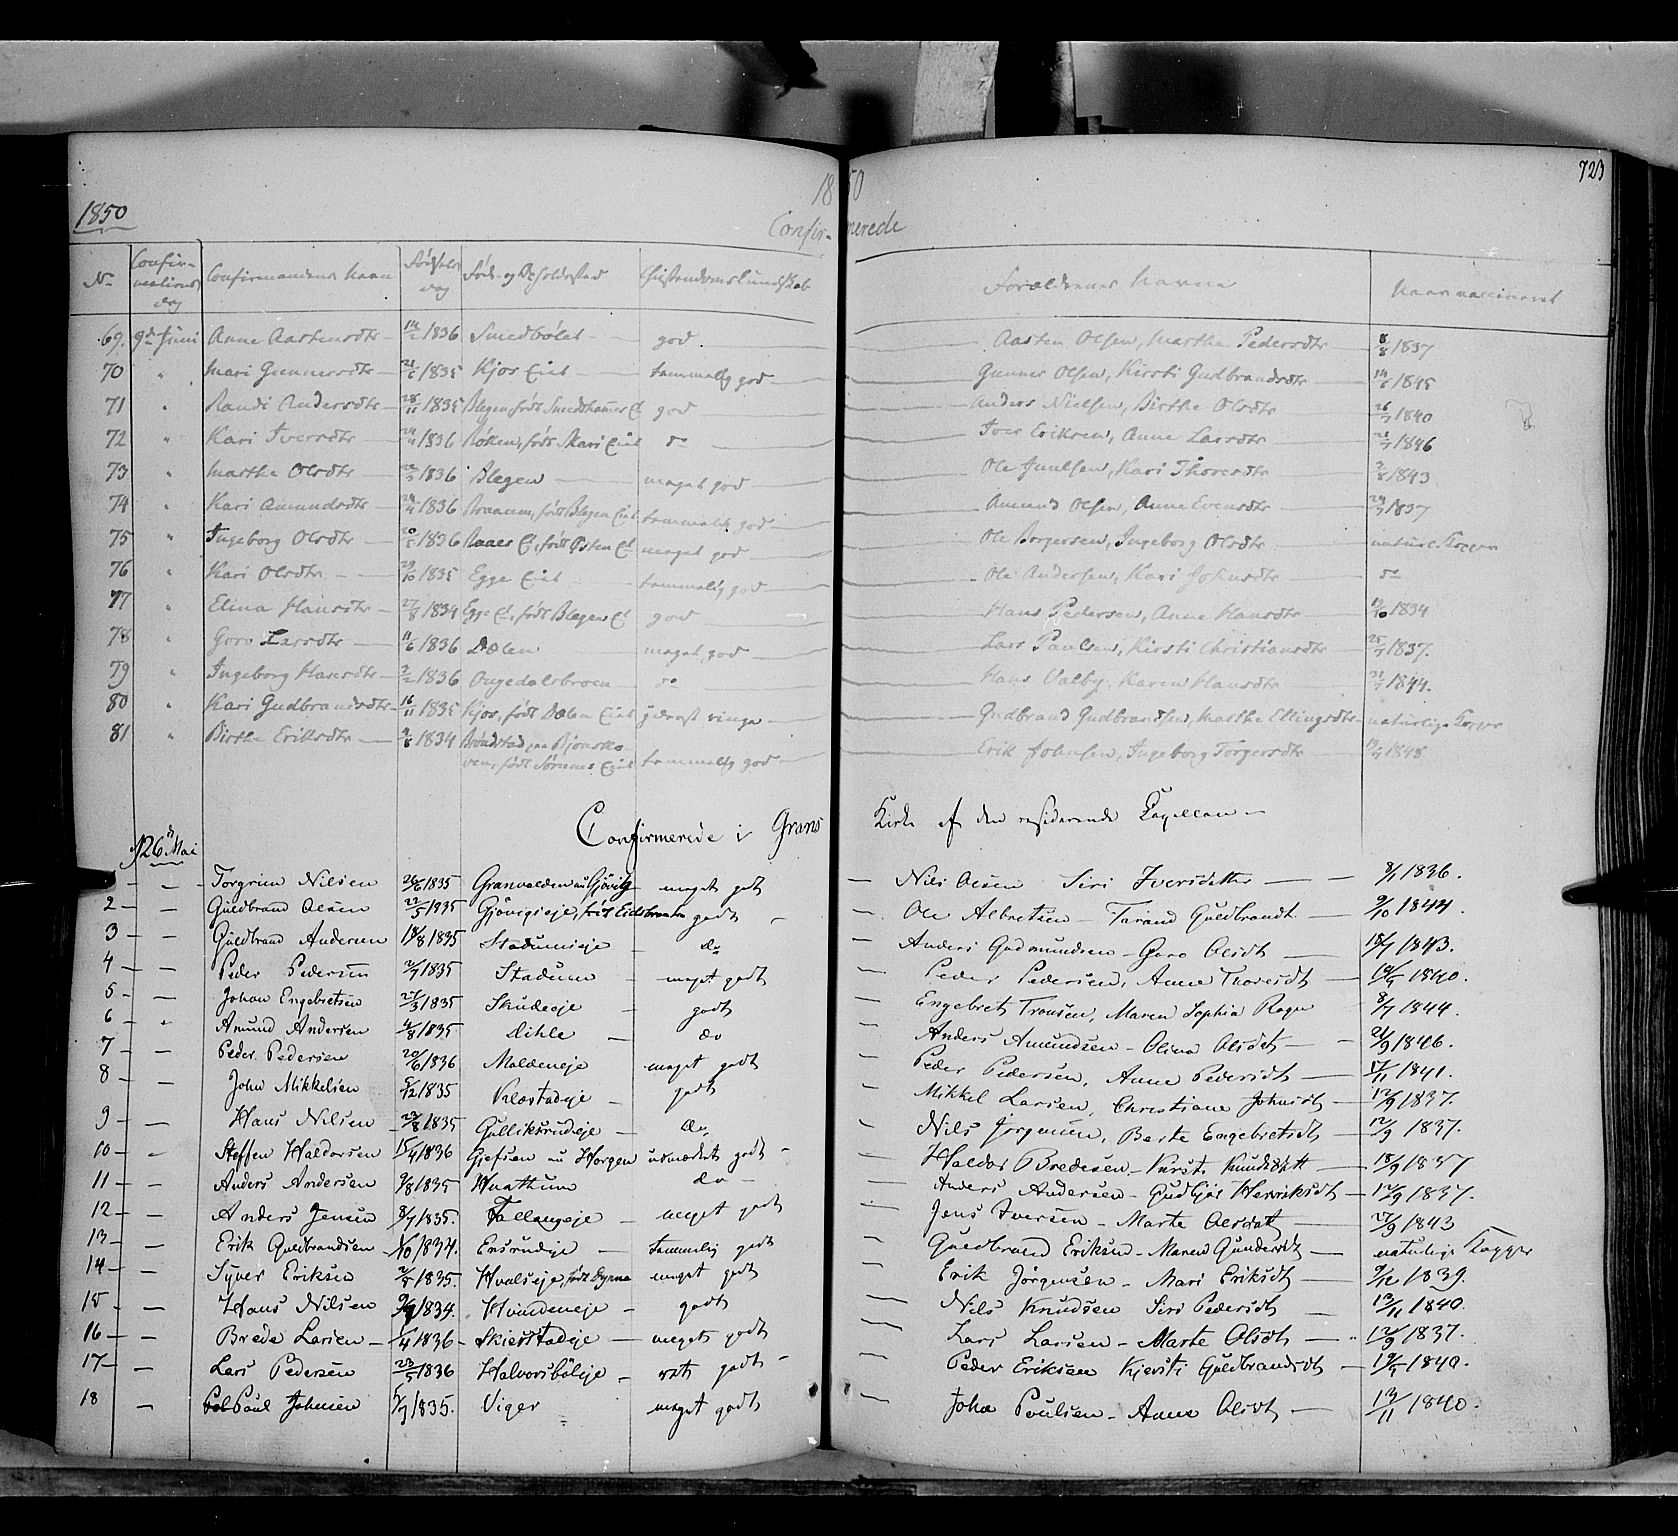 723
1850
1850
Confirmerede
No Confirmations dag Confirmandens Navn Fødselsdag Føde- og Opholdssted Christendomskundskab Forældrenes Navne Naar vaccineret
69. 9de Juni Anne Aastensdtr 1836 Smedbølet god Aasten Olsen, Marthe Pedersdtr 8/8 1837
70 " Mari Gunnersdtr 1835 Kjos Eiet temmelig god Gunner Olsen, Kirsti Gudbrandsdtr 1845
71 " Randi Andersdtr 28/11 1835 Blegen, født Smedshamer Et god Anders Nielsen, Birthe Olsdtr 26/7 1840
72 " Kari Iversdtr 1836 Røken, født Skari Eiet do Iver Eriksen, Anne Larsdtr 1846
73 " Marthe Olsdtr 1836 Blegen meget god Ole Juulsen, Kari Thoresdtr 1843
74 " Kari Amundsdtr 1836 født Blegen Eiet temmelig god Amund Olsen, Anne Evensdtr 1837
75 " Ingeborg Olsdtr 1836 Raaes Et, født Østen Et meget god Ole Borgersen, Ingeborg Olsdtr naturl. Kopper
76 " Kari Olsdtr 29/10 1835 Egge Eiet temmelig god Ole Andersen, Kari Johnsdtr do
77 " Elina Hansdtr 27/8 1834 Egge Et, født Blegen Et god Hans Pedersen, Anne Hansdtr 19/10 1834
78 " Goro Larsdtr 11/6 1836 Dælen meget god Lars Paulsen, Kirsti Christiansdtr 25/7 1837.
79 " Ingeborg Hansdtr 2/2 1836 Ougedalsbroen do Hans Valby, Karen Hansdtr 1844.
80 " Kari Gudbrandsdtr 16/11 1835 Kjos, født Dælen Eiet yderst ringe Gudbrand Gudbrandsen, Marthe Ellingsdtr naturlige Kopper
81 " Birthe Eriksdtr 1834 Brøndstad paa Bjonsko- Erik Johnsen, Ingeborg Torgersdtr 1848
ven, født Sørenes Eiet temmelig god
Confirmerede i Grans Kirke af den residerende Capellan
d 26 Mai
1 Torgrim Nilsen 26/6 1835 Granvolden nu Gjøvig meget godt Nils Olsen Siri Iversdatter 8/1 1836.
2 Guldbrand Olsen 22/5 1835 Gjøvigseje, født Eidsbraaten godt Ole Albretsen Tarand Guldbrandt 9/10 1844.
3 Guldbrand Andersen 18/8 1835 Stadumseje do Anders Gudmundsen Goro Olsdt 18/7 1843.
4 Peder Pedersen 2/7 1835 Stadum meget godt Peder Pedersen, Anne Thoresdt 1840.
5 Johan Engebretsen 27/3 1835 Skudeeje godt Engebret Tronsen, Maren Sophia 8/7 1844.
6 Amund Andersen 1835 Dihle do Anders Amundsen Olina Olsdt 21/9 1846.
7 Peder Pedersen 20/6 1836 Moldeneje meget godt Peder Pedersen, Anne Pedersdt 1841.
8 John Mikkelsen 5/12 1835 Klæstadeje godt Mikkel Larsen, Christiane Johnsdt 12/9 1837.
9 Hans Nilsen 23/8 1835 Gulliksrudeje do. Nils Jørgensen, Berte Engebretsdt 12/9 1837.
10 Steffen Haldorsen 15/4 1836 Gjefsen nu Horgen udmærket godt Haldor Bredesen Kirsti Knudsdatt 18/9 1837
11 Anders Andersen 9/8 1835 Hvattum do Anders Andersen Gudbjør Henriksdt 12/9 1837.
12 Anders Jensen 8/7 1835. Fallangeje meget godt Jens Iversen Marte Olsdatt 27/9 1843
13 Erik Guldbrandsen 1834. Ensrudeje temmelig godt Guldbrand Eriksen Maren Gundersdt naturlige Kopper
14 Syver Eriksen 2/5 1835. Hvalseje, født Dynna meget godt Erik Jørgensen Mari Eriksdt 9/12 1839.
15 Hans Nilsen 1834. Hvindeneje godt Nils Knudsen Siri Pedersdt 13/11 1840.
16 Brede Larsen 1836 Skierstadeje meget godt Lars Larsen Marte Olsdt 12/9 1837.
17 Lars Pedersen 23/5 1836 Halvorsbøleje ret godt Peder Eriksen Kjersti Guldbrandsdt 1840.
18 Paul Johnsen 5/7 1835. Viger meget godt John Poulsen Anne Olsdt 13/11 1840.